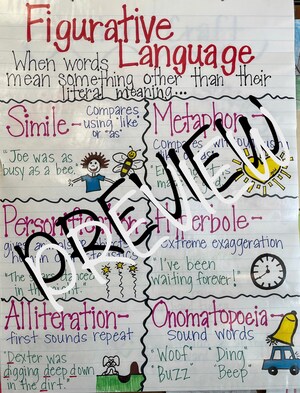 Figurative
Language
When words
mean something other than their
literal meaning...
Simile-
Compares
using "like"
or "as"
"Joe was as
busy as a bee."
Metaphor-
Compares without using
PREVIEW
Personification-
Hyperbole-
extreme exaggeration
"I've been
waiting forever!"
Alliteration-
first sounds repeat
"Dexter was
digging deep down
in the dirt."
Onomatopoeia-
sound words
"Woof" "Ding"
"Buzz" "Beep"